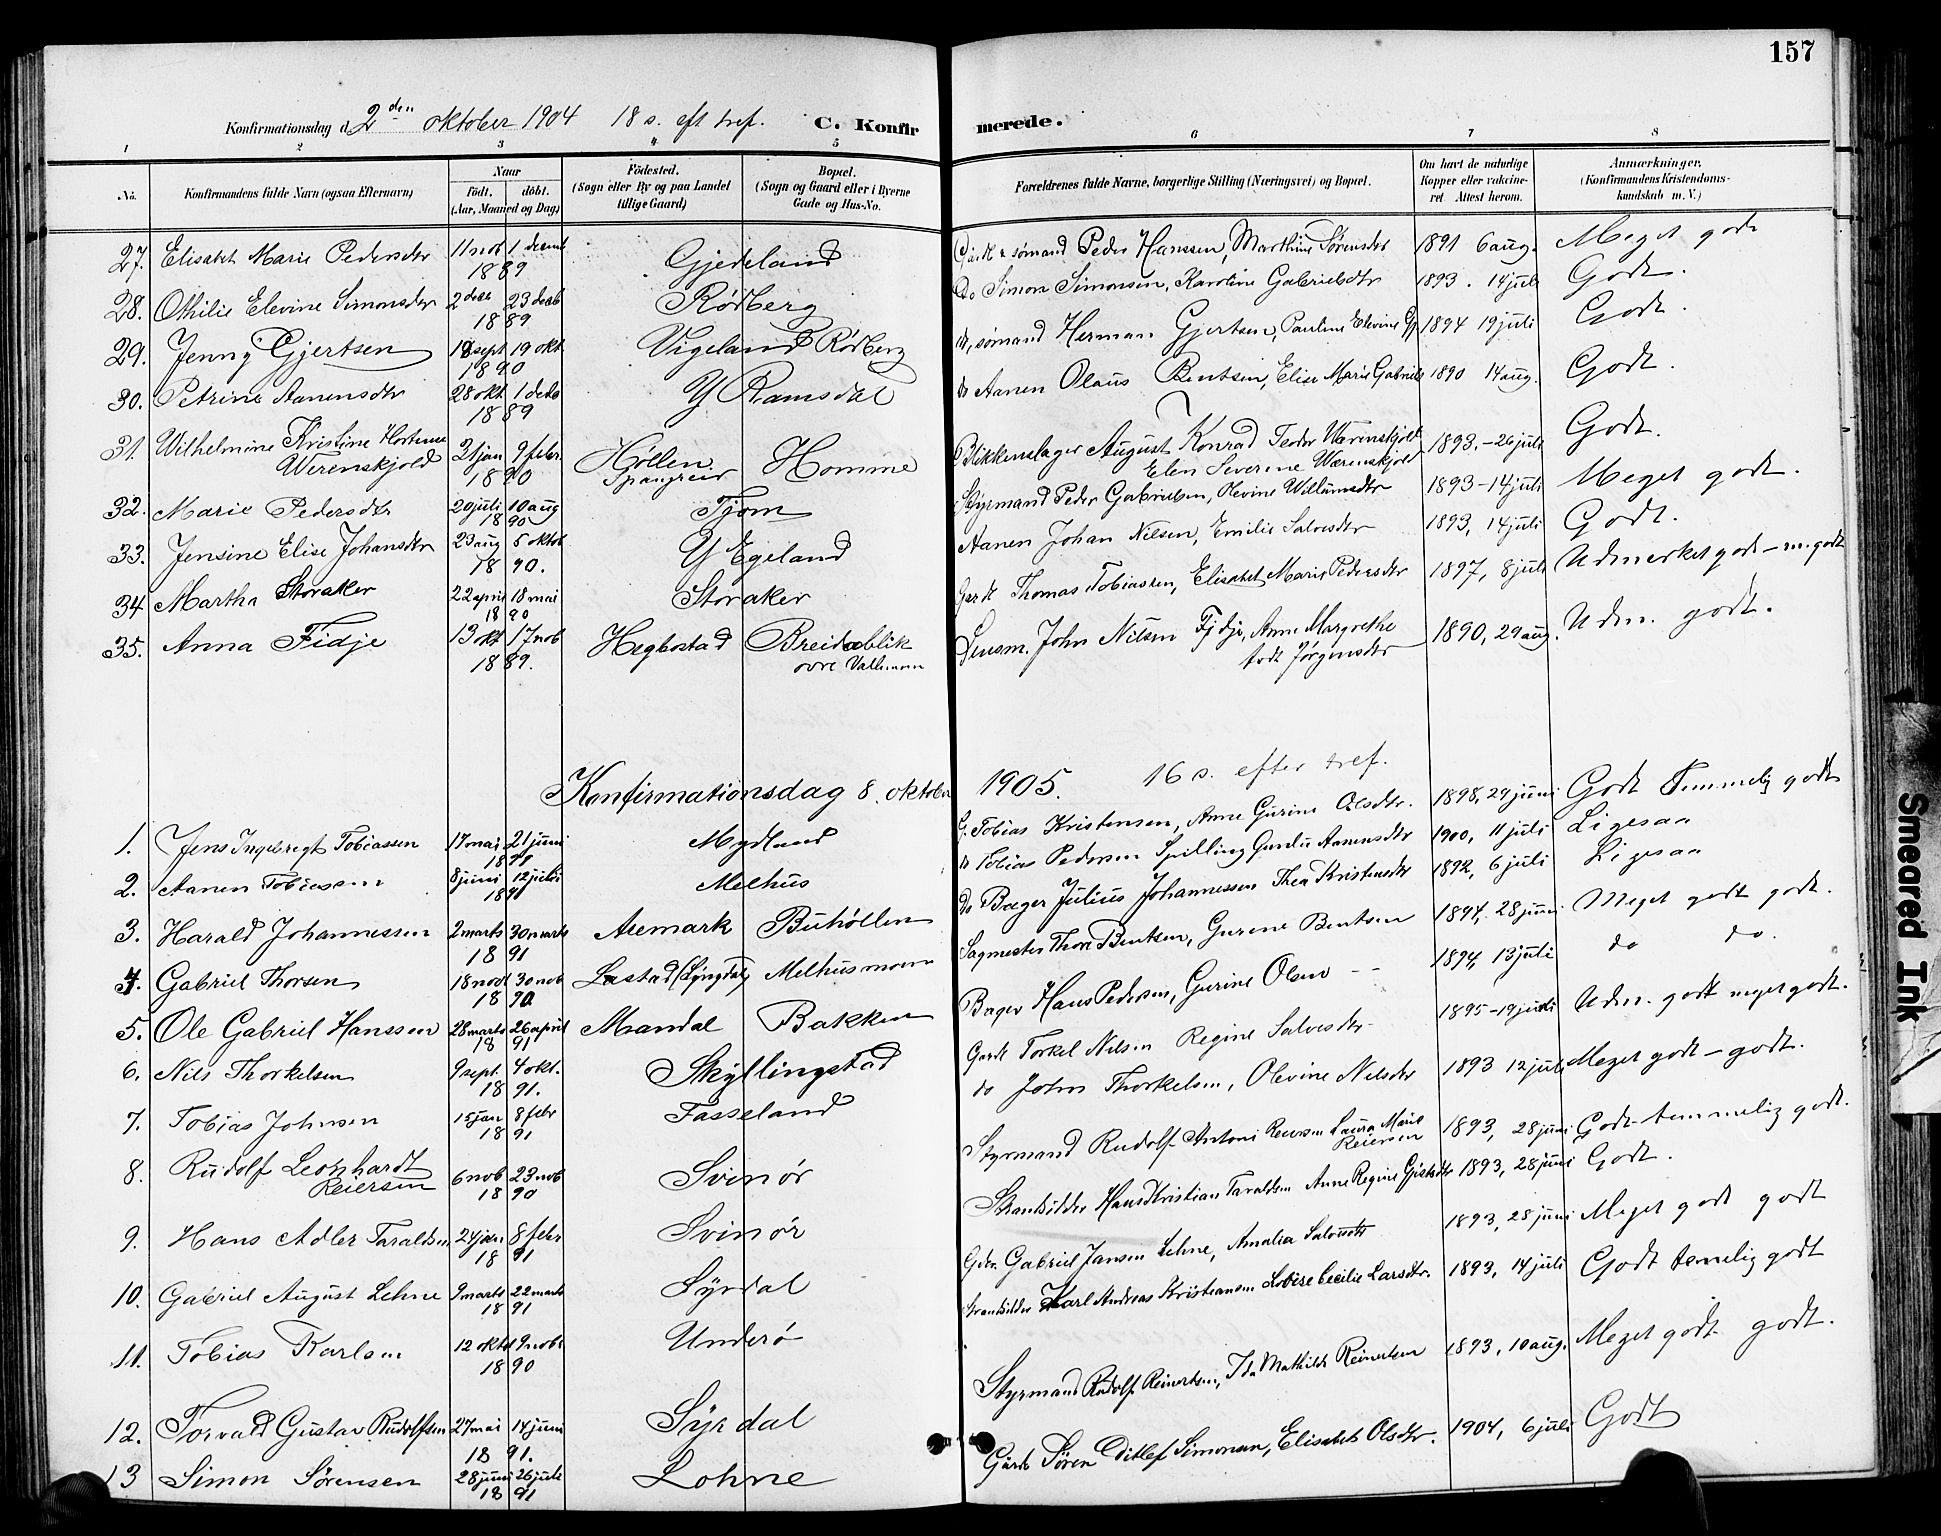 157
Konfirmationsdag d. 2den oktober 1904 18 s. eft tref. C. Konfirmerede.
1 2 3 4 5 6 7 8
No. Konfirmandens fulde Navn (ogsaa Efternavn) Naar Födt. döbt. (Aar, Maaned og Dag) Födested. (Sogn eller By og paa Landet tillige Gaard) Bopæl. (Sogn og Gaard eller i Byerne Gade og Hus-No. Forældrenes fulde Navne, borgerlige Stilling (Næringsvei) og Bopæl. Om havt de naturlige Kopper eller vakcineret Attest herom. Anmærkninger. (Konfirmandens Kristendomskundskab m. V.)
27. Elisabet Marie Pedersdtr 11 nob 1 decemb 1889 Gjedeland Peder Hanssen, Marthine Sørensdtr 1891 6 aug. Meget godt
28. Othilie Elevine Simonsdtr 2 dec 23 decb 1889 Rødberg Do Simon Simonsen, Karoline Gabrielsdtr 1893. 14 juli Godt.
29. Jenny Gjertsen 18 sept 19 okt 1890 Vigeland Rødberg sømand Herman Gjertsen, Pauline Elevine Gj. 1894 19 juli Godt.
30. Petrine Aanensdtr 28 okt 1 decb 1889 Y Ramsdal Aanen Olaus Bentsen, Elise Marie Gabriels 1890 14 aug. Godt.
31. Wilhelmine Kristine Hortense Werenskjold 21 jan 9 febr 1890 Høllen Spangreid Homme Blikkenslager August Konrad Teodor Werenskjold Elen Severine Wærenskjold 1893.-26 juli Godt.
32. Marie Pedersdtr 20 juli 10 aug 1890 Tjom Styrmand Peder Gabrielsen, Olevine Willumsdtr 1893-14 juli Meget godt.
33. Jensine Elise Johansdtr 23 aug 5 oktob 1890. Y Egeland Aanen Johan Nilsen, Emilie Salvesdtr 1893, 14 juli Godt.
34 Martha Storaker 22 april 18 mai 1890 Storaker Gardb Thomas Tobiassen, Elisabet Marie Pedersdtr 1897, 8 juli Udmerket godt - m. godt
35. Anna Fidje 13 okt 17 nob 1889. Hegbostad Breidablik øvre Vatlemoen Lensm. John Nilsen Fidje, Anne Margrethe født Jørgensdtr 1890, 29 aug. Udm. godt.
Konfirmationsdag 8. oktober 1905. 16 s. efter tref.
1. Jens Ingebregt Tobiassen 17 mai 21 juni 1891 Mydland G. Tobias Kristensen, Anne Gurine Olsdtr. 1898, 29 juni Godt Temmelig godt
2. Aanen Tobiassen 8 juni 12 juli 1891 Melhus Tobias Pedersen Spilling Gunda Aanensdtr 1900, 11 juli Ligesaa
3. Harald Johannessen 2 marts 30 marts 1891 Aremark Buhøllen do Bager Julius Johannessen Thea Kristensdtr 1892, 6 juli Ligesaa
4. Gabriel Thorsen 18 nob 30 nob 1890 Lastad (Lyngdal) Melhusmoen Sagmester Thore Bentsen, Gurene Bentsen 1894, 28 juni Meget godt godt.
5. Ole Gabriel Hanssen 28 marts 26 april 1891 Mandal Bakken Bager Hans Pedersen, Gurine Olsen 1894, 13 juli do do.
6. Nils Thorkelsen 9 sept. 4 okt. 1891. Skyllingstad Gardb Torkel Nilsen Regine Salvesdtr 1895-19 juli Udm. godt meget godt.
7. Tobias Johnsen 15 jan 8 febr 1891 Fasseland do John Thorkelsen, Olevine Nilsdtr 1893 12 juli Meget godt - godt.
8. Rudolf Leonhardt Reiersen 6 nob 23 nob 1890 Svinør Styrmand Rudolf Antoni Reiersen Laura Marie Reiersen 1893, 28 juni Godt - temmelig godt.
9. Hans Adler Taraldsen 24 jan 8 febr 1891 Svinør Skræddr Hans Kristian Taraldsen Anne Regine Gjertsdtr 1893, 28 juni Godt.
10. Gabriel August Lehne 9 marts 22 marts 1891 Syrdal Gabriel Jansen Lehne, Amalia Salvesdtr 1893, 28 juni Meget godt godt
11. Tobias Karlsen 12 oktb 9 nobr 1890 Underø Karl Andreas Kristiansen Lovise Cecilie Larsdtr. 1893, 14 juli Godt temelig godt
12. Torvald Gustav Rudolfsen 27 mai 14 juni 1891. Syrdal Styrmand Rudolf Reinertsen, Ida Mathilde Reinertsen 1893, 10 aug. Meget godt godt.
13 Simon Sørensen 28 juni 26 juli 1891 Lohne Gardb Søren Ditlef Simonsen, Elisabet Olsdtr. 1904, 6 juli Godt
Smeared Ink